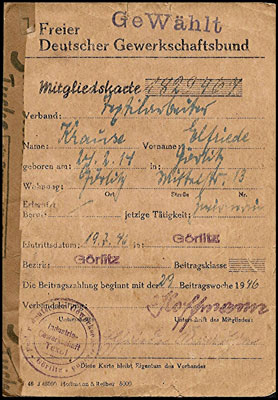 GeWählt
Freier
Deutscher Gewerkschaftsbund
Mitgliedskarte
Verband: Textilarbeiter
Name: Krause Vorname: Elfriede
geboren am: 24. 2. 14 in: Görlitz
Wohnung: Görlitz Mittelstr. 13
Ort Straße Nr.
Beruf: jetzige Tätigkeit:
Eintrittsdatum 19. 7. 46 in: Görlitz
Bezirk: Görlitz Beitragsklasse
Die Beitragszahlung beginnt mit der 29 Beitragswoche 1946
Verbandsleitung: Hoffmann
Unterschrift des Mitgliedes:
Industrie-
Gewerkschaft
Textil
Görlitz
Diese Karte bleibt Eigentum des Verbandes
Hoffmann & Reiber